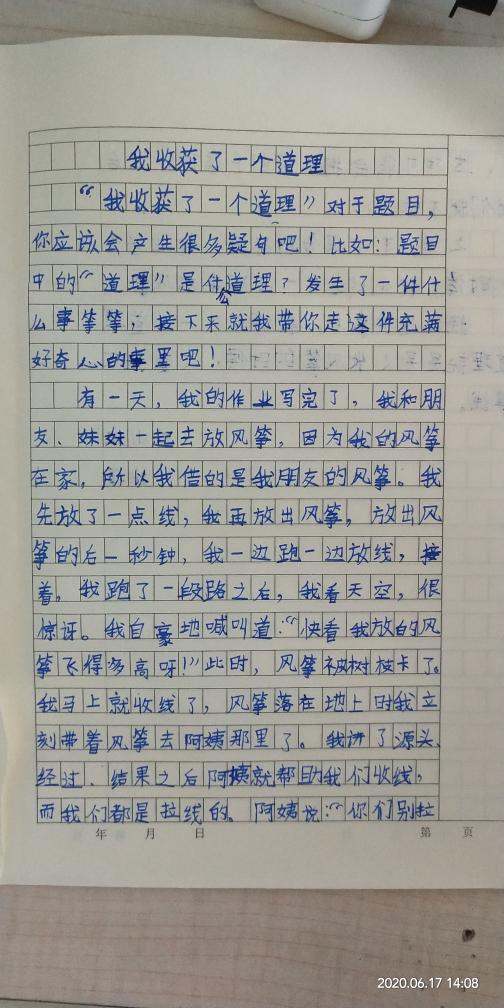 我收获了一个道理
“我收获了一个道理”对于题目，
你应该会产生很多疑句吧！比如：题目
中的“道理”是什么道理？发生了一件什
么事等等，接下来就我带你走这件充满
好奇心的事里吧！
有一天，我的作业写完了，我和朋
友、妹妹一起去放风筝，因为我的风筝
在家，所以我借的是我朋友的风筝。我
先放了一点线，我再放出风筝，放出风
筝的后一秒钟，我一边跑一边放线，接
着，我跑了一段路之后，我看天空，很
惊讶。我自豪地喊叫道：“快看我放的风
筝飞得多高呀！”此时，风筝被树枝卡了。
我马上就收线了，风筝落在地上时我立
刻带着风筝去阿姨那里了。我讲了源头、
经过、结果之后阿姨就帮助我们收线，
而我们都是拉线的。阿姨说：“你们别拉
年 月 日 第 页
2020.06.17 14:08